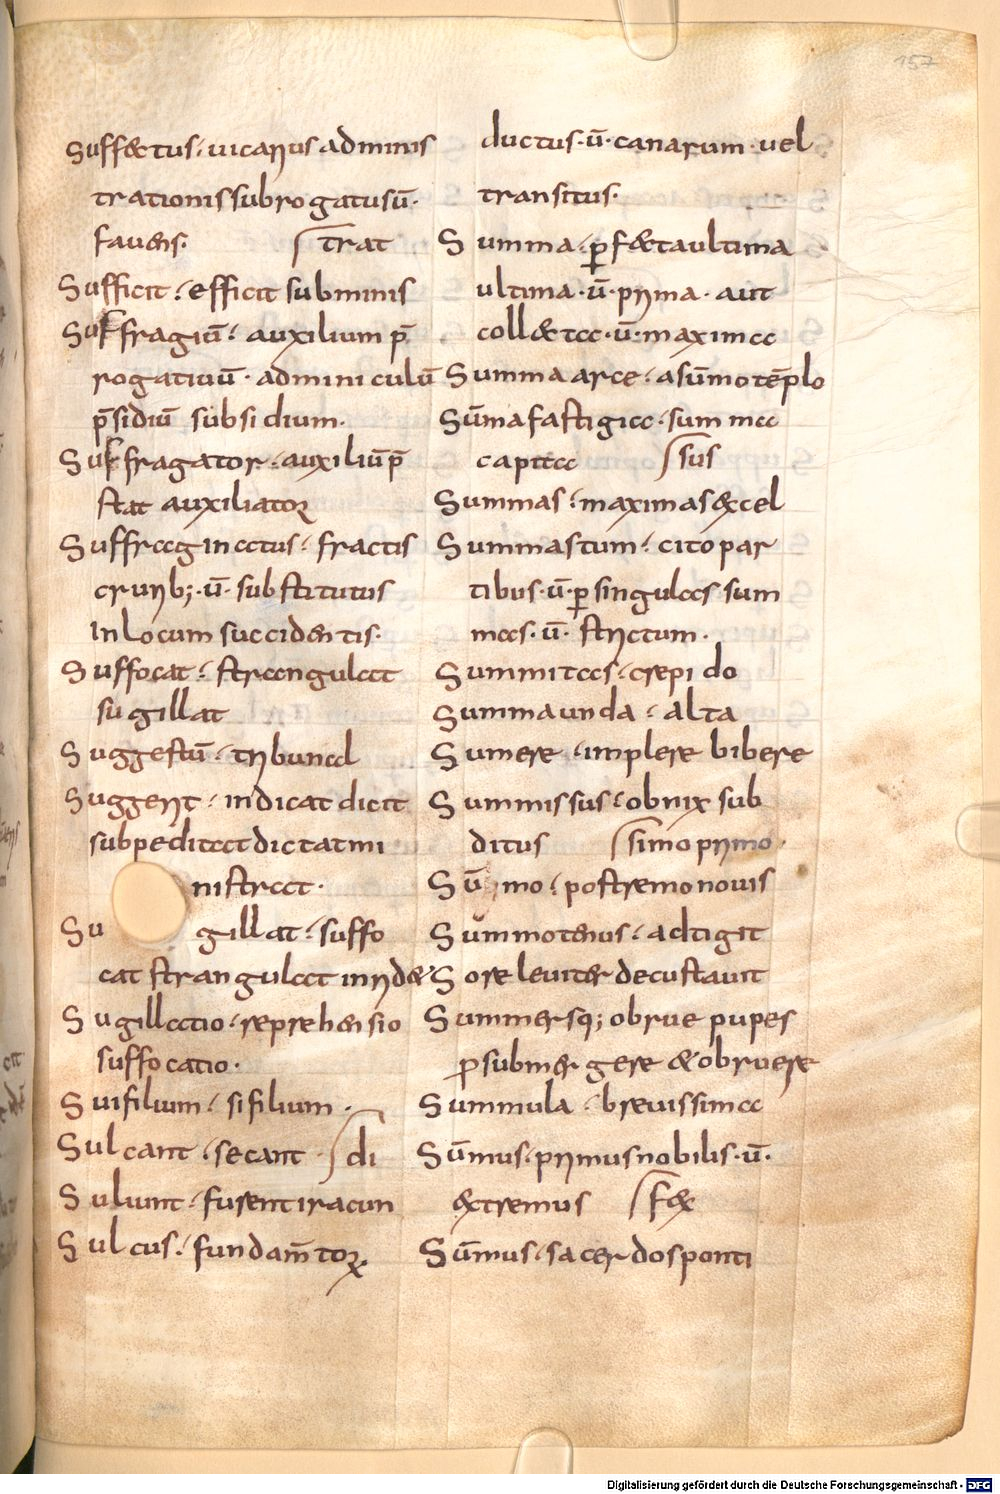 157
Suffectus · uicarius adminis
trationis subrogatus ū ·
fauens · trat
Sufficit · efficit subminis
Suffragiū · auxilium p̄
rogatiuū · adminiculū
p̄sidiū subsidium ·
Suffragator · auxiliū p̄
stat auxiliator
Suffraginatus · fractis
crurib; · ū · substitutus
In locum succidentis ·
Suffocat · strangulat
sugillat
Suggestū · tribunal
Suggerit · indicat dicit
subpeditat dictat mi
nistrat ·
Su gillat · suffo
cat strangulat inridet
Sugillatio · reprehensio
suffocatio ·
Suifilium · sifilium ·
Sulcant · secant · di
Suliunt · furent iracun
Sulcus · fundam̄torꝝ
ductus · ū · canarum · uel
transitus ·
Summa · ꝑfecta ultima
ultima · ū · prima · aut
collecta · ū · maxima
Summa arce · a sūmo tēplo
Sūma fastigia · summa
capita sus
Summas · maximas excel
Summastum · cito par
tibus · ū · ꝑ singulas sum
mas · ū · strictum ·
Summitas · crepido
Summa unda · alta
Sumere · implere bibere
Summissus · obnix sub
ditus simo primo ·
Sūmo · postremo nouis
Summotenus · adtigit
Sore leuiter decustauit
Summersq; obrue pupes
ꝓ submergere et obruere
Summula · breuissima
Sūmus · primus nobilis · ū ·
extremus fex
Sūmus · sacerdos ponti
Digitalisierung gefördert durch die Deutsche Forschungsgemeinschaft - DFG